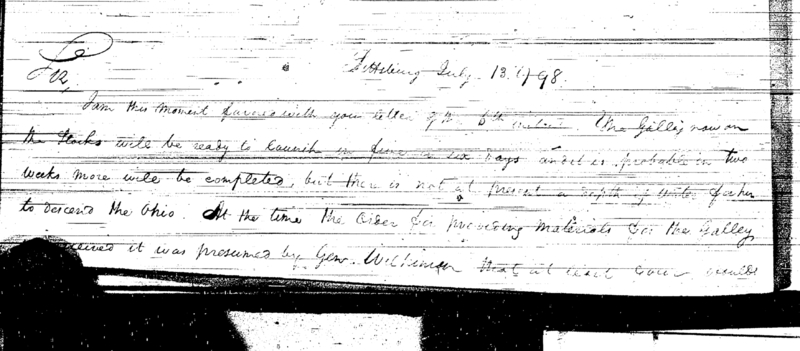 Sir,
Pittsburg July 13. 1798.
I am this moment favored with your letter of the 6th instant. The Galley now on
the Stocks will be ready to launch in five or six days and it is probable in two
weeks more will be completed, but there is not at present a depth of water for her
to descend the Ohio. At the time the Order for providing materials for the Galley
it was presumed by Genl. Wilkinson that at least four would